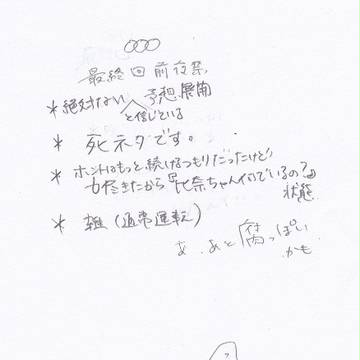 最終回前夜祭
*絶対ない予想展開
と信じている
*死ネタです。
*ホントはもっと続けるつもりだったけど
力尽きたから 奈ちゃん何でいるの?な
状態
*雑(通常運転)
あ、あと腐っぽい
かも